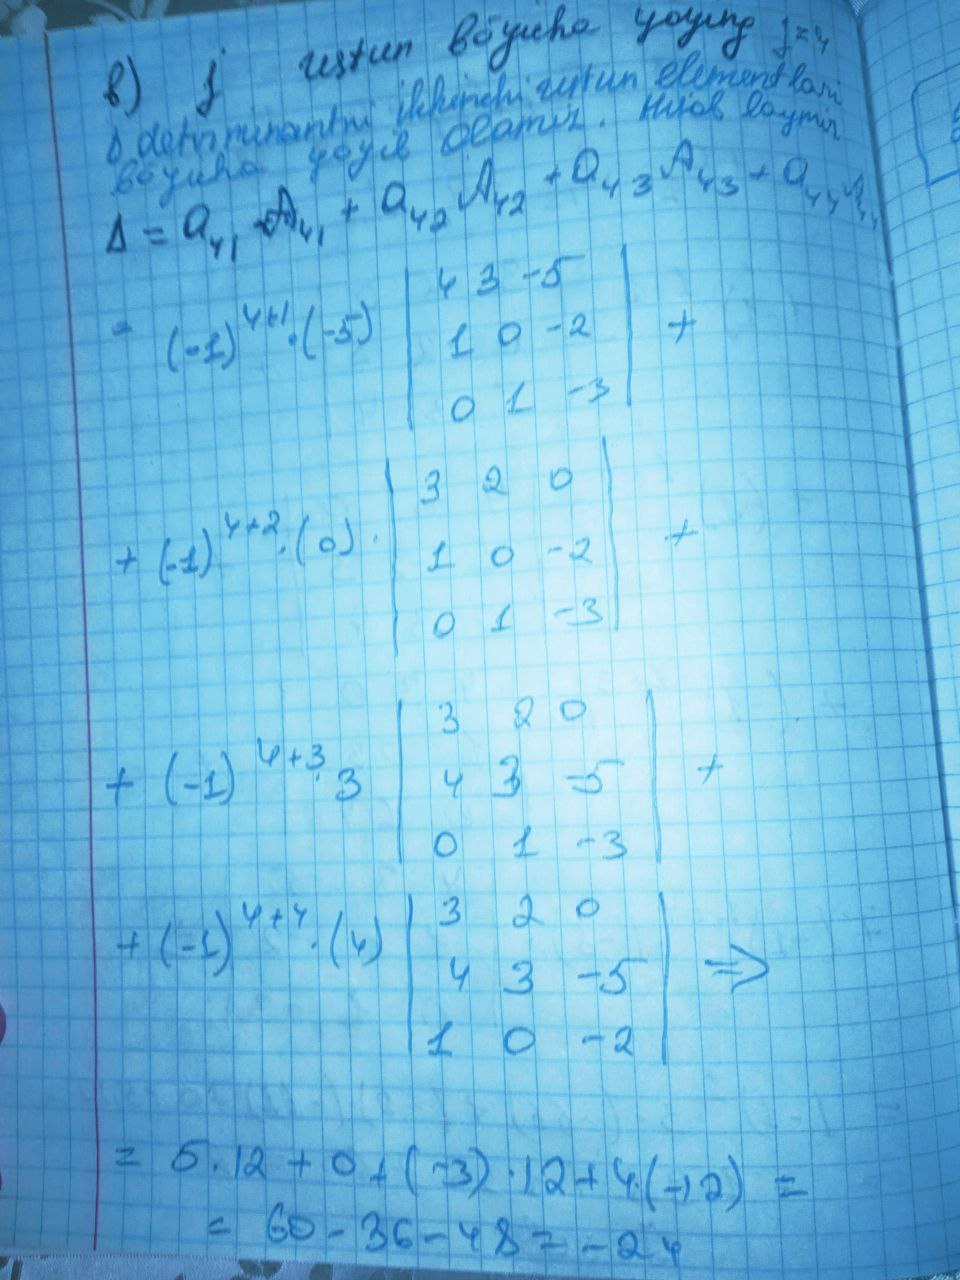 b) j ustun bo'yicha yoying j=4
Δ determinantni ikkinchi ustun elementlari
bo'yicha yoyib olamiz. Hisoblaymiz
Δ = a₄₁ A₄₁ + a₄₂ A₄₂ + a₄₃ A₄₃ + a₄₄ A₄₄
= (-1)⁴⁺¹ · (-5) | 4 3 -5 | +
| 1 0 -2 |
| 0 1 -3 |
+ (-1)⁴⁺² · (0) · | 3 2 0 | +
| 1 0 -2 |
| 0 1 -3 |
+ (-1)⁴⁺³ · 3 | 3 2 0 | +
| 4 3 -5 |
| 0 1 -3 |
+ (-1)⁴⁺⁴ · (4) | 3 2 0 | =>
| 4 3 -5 |
| 1 0 -2 |
= 5 · 12 + 0 + (-3) · 12 + 4 · (-12) =
= 60 - 36 - 48 = -24